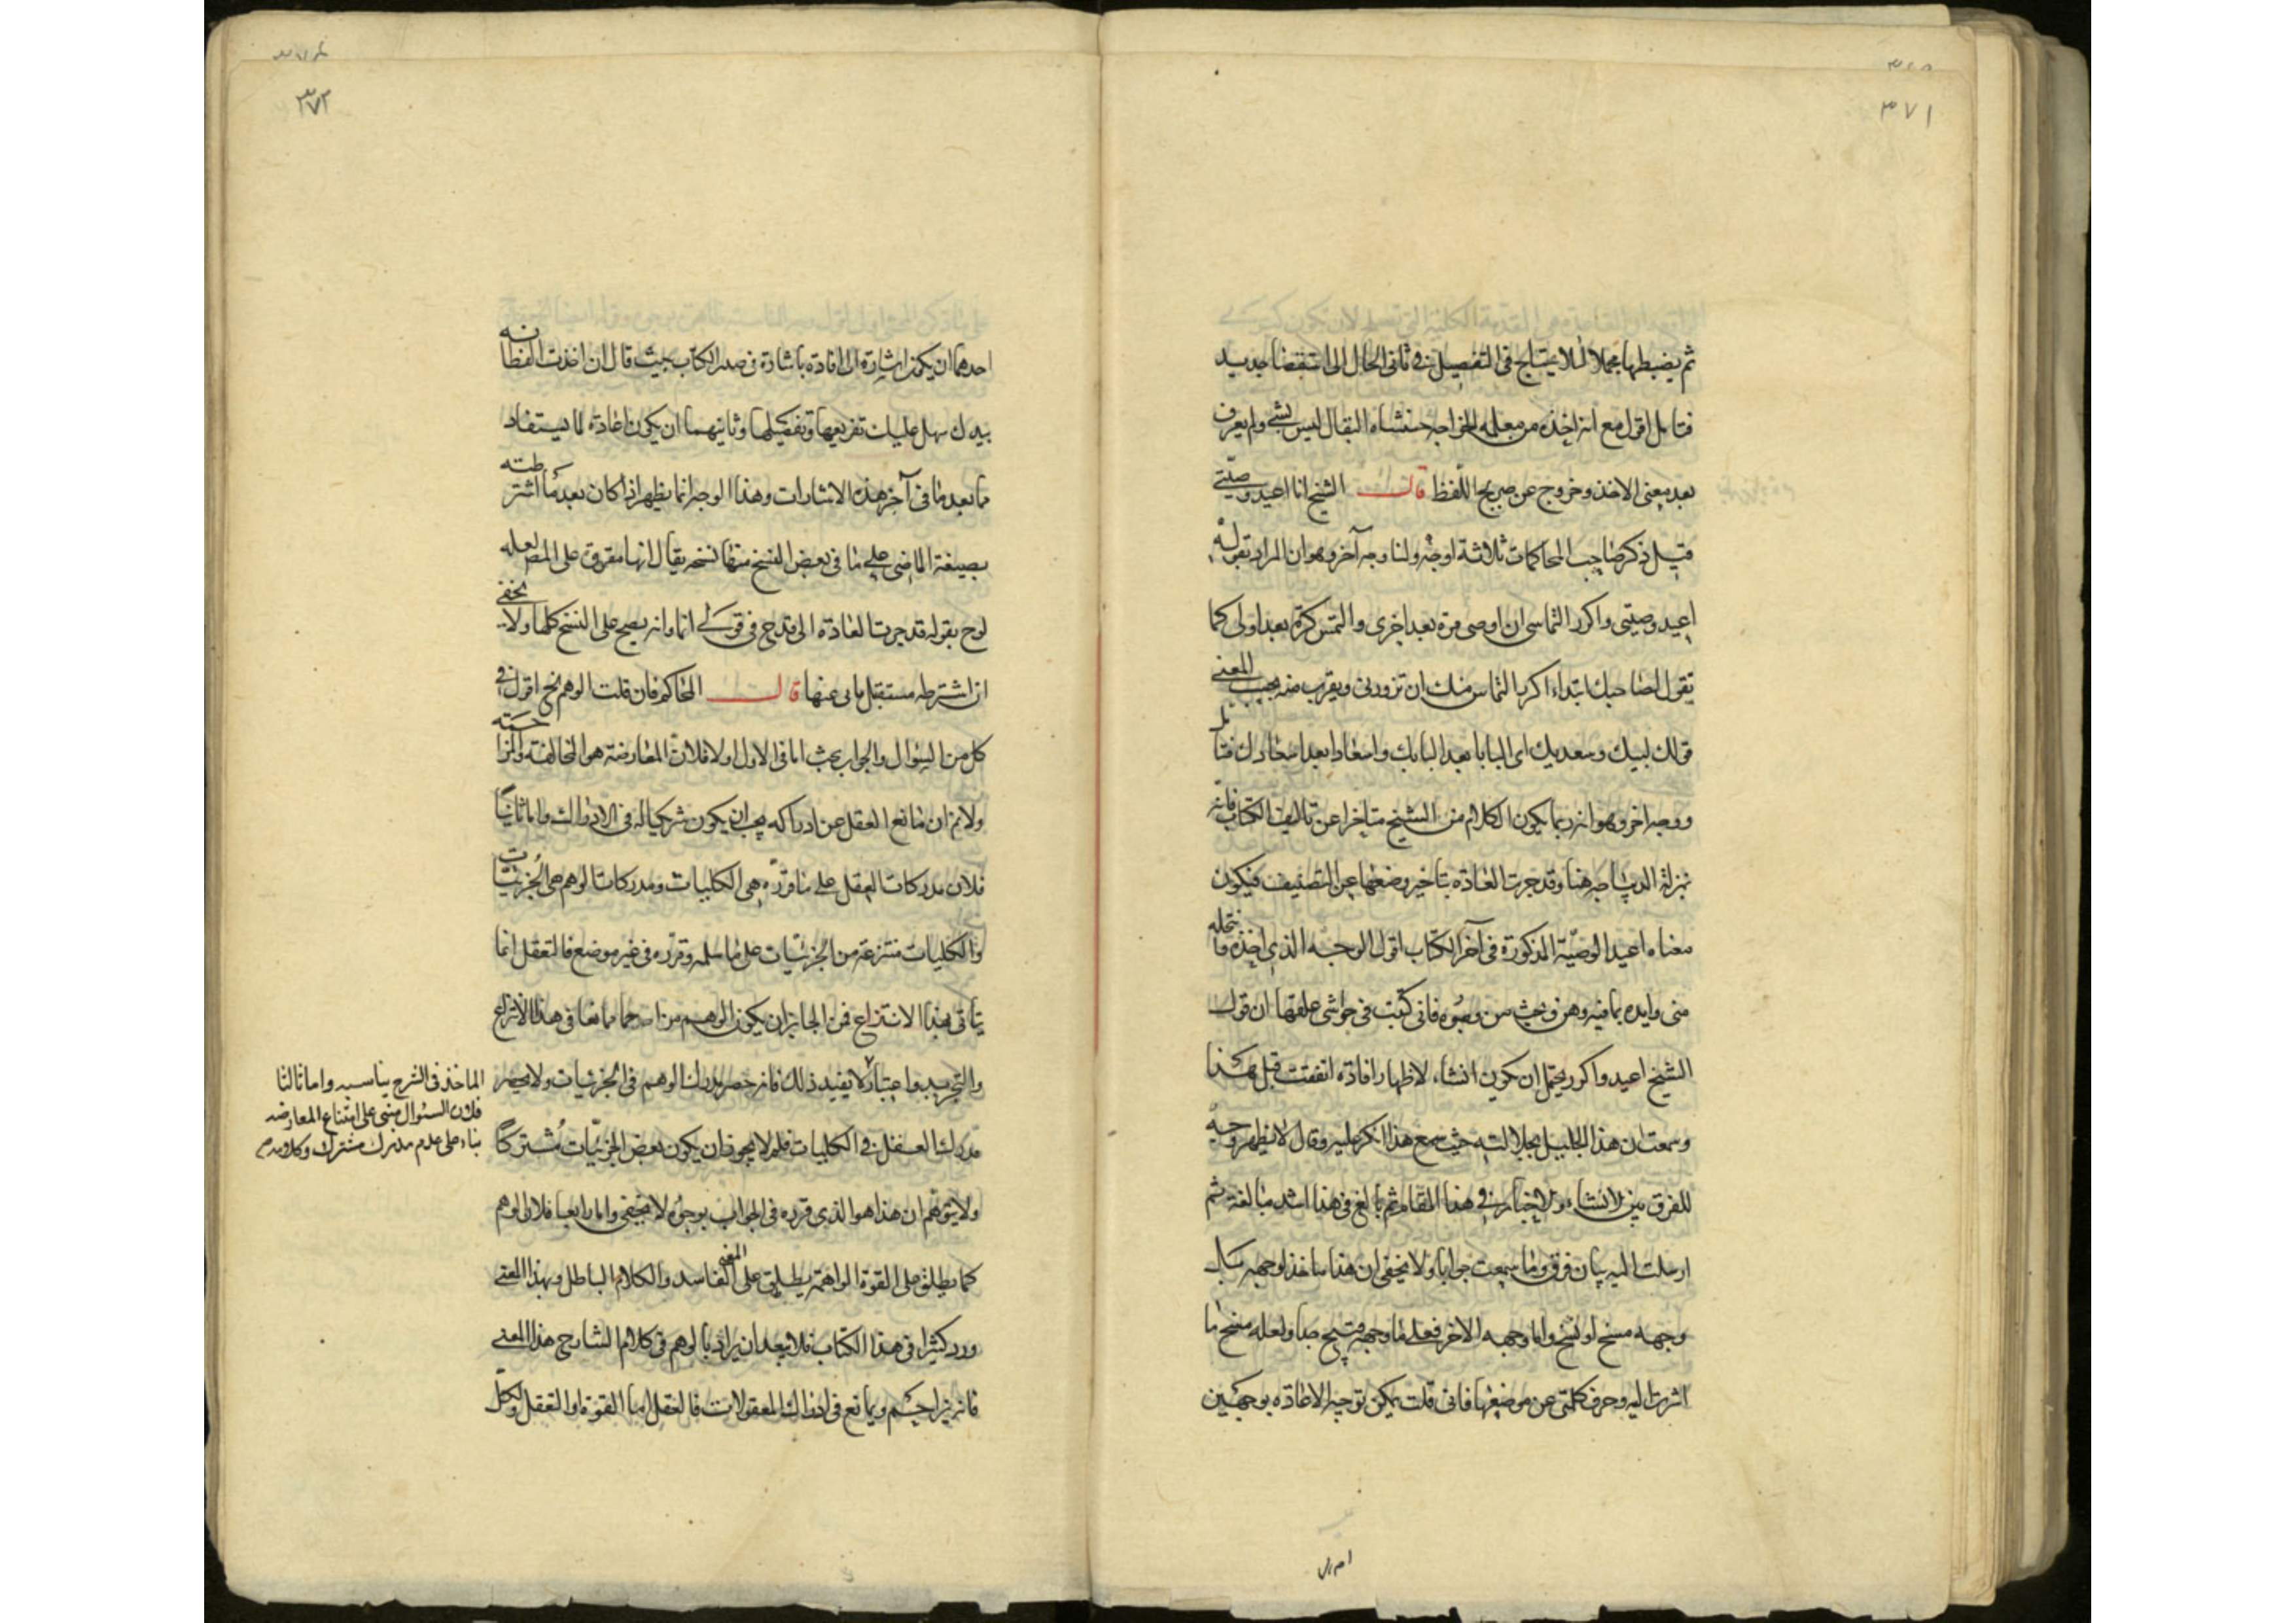 ٣٧١
ثم يضبطها مجملا لئلا يحتاج في التفصيل في ثاني الحال الى استقضا جديد
فتامل اقول مع انه اخذه من معلمه الخواجه حسنشاه البقال ليس بشي ولم يعرف
بعد معنى الاخذ وخروج عن صريح اللفظ قال الشيخ انا اعيد وصيتي
قيل ذكر صاحب المحاكمات ثلاثة اوجه ولنا وجه آخر وهو ان المراد بقوله
اعيد وصيتي واكرر التماسي ان اوصي مرة بعد اخرى والتمس كرة بعد اولى كما
تقول لصاحبك ابتداء اكرر التماس منك ان تزورني ويقرب منه بحسب المعنى
قولك لبيك وسعديك اي البابا بعد الباب واسعادا بعد اسعادك فتامل
ووجه اخر وهو انه ربما يكون الكلام من الشيخ متاخرا عن تاليف الكتاب فانه
بمنزلة الديباجه هنا وقد جرت العادة بتاخير وضعها عن التصنيف فيكون
معناه اعيد الوصية المذكورة في آخر الكتاب اقول الوجه الذي اخذه وانتحله
مني وايده بما فيه وهن وبحث من وجوه فاني كتبت في حواشي علقتها ان قول
الشيخ اعيد واكرر يحتمل ان يكون انشاء لاظهار افادة اتفقت قبل هكذا
وسمعت ان هذا الجليل بجلالته حيث سمع هذا انكر عليه وقال لا يظهر وجه
للفرق بين الانشاء والاخبار في هذا المقام ثم بالغ في هذا اشد مبالغة ثم
ارسلت اليه بيان فرق وما سمعت جوابا ولا يخفى ان هذا ماخذ لوجهه بل
وجهه مسخ او نسخ واما وجهه الاخر فعلى ما وجهه قبيح جدا ولعله مسخ ما
اشرت اليه وحرف كلمتي عن موضعها فاني قلت يمكن توجيه الاعادة بوجهين
٣٧٢
احدهما ان يكون اشارة الى افادة باشارة في صدر الكتاب حيث قال ان اخذت الفطانة
بيدك سهل عليك تفريعها وتفصيلها وثانيهما ان يكون اعادة لما يستفاد
مما بعد ما في آخر هذه الاشارات وهذا الوجه انما يظهر اذا كان بعد ما اشترطته
بصيغة الماضي على ما في بعض النسخ منها نسخه يقال انها مقروة على المص لعله
لوح بقوله قد جرت العادة الى قدح في قولي انما وانه يصح على النسخ كلها ولا يخفى
ان اشترطه مستقبل مابى عنها قال المحاكم فان قلت الوهم الخ اقول في
كل من السؤال والجواب بحث اما في الاول اولا فلان المعارضة هو المخالفة والمزاحمة
ولا نم ان مانع العقل عن ادراكه يجب ان يكون شريكا له في الادراك واما ثانيا
فلان مدركات العقل على ما قرره هي الكليات ومدركات الوهم هي الجزئيات
والكليات منتزعة من الجزئيات على ما سلمه وقرره في غير موضع فالتعقل انما
يتاتى بهذا الانتزاع فمن الجايز ان يكون الوهم مزاحما مانعا في هذا الانتزاع
والتجريد واعتبار لا يفيد ذلك فانه حصر مدرك الوهم في الجزئيات ولا يحصر
مدرك العقل في الكليات فلم لا يجوز ان يكون بعض الجزئيات مشتركا
ولا يتوهم ان هذا هو الذي قرره في الجواب بوجوه لا تخفى واما رابعا فلان الوهم
كما يطلق على القوة الواهمة يطلق على المعنى الفاسد والكلام الباطل وبهذا المعنى
ورد كثيرا في هذا الكتاب فلا يبعد ان يراد بالوهم في كلام الشارح هذا المعنى
فانه يزاحم ويمانع في ادراك المعقولات فالعقل اما القوة او التعقل وكل
الماخذ في الشرح يناسبه واما ثالثا
فلان السئوال مبني على امتناع المعارضه
بناء على عدم مدرك مشترك وكلامه